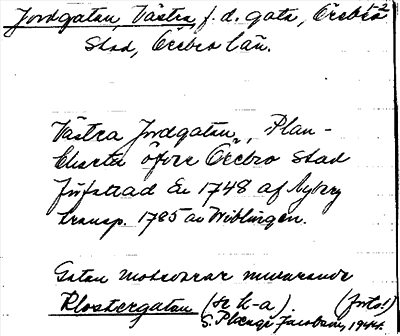 Jordgatan, Västra, f. d. gata, Örebro 1-2
Stad, Örebro län.
Västra Jordgatan, Plan-
Charta öfver Örebro Stad
Författad År 1748 af Nyberg
transp. 1785 av Wiblingen.
Gatan motsvarar nuvarande
Klostergatan (se h-a). (forts!)
S. Plænge Jacobson, 1944.